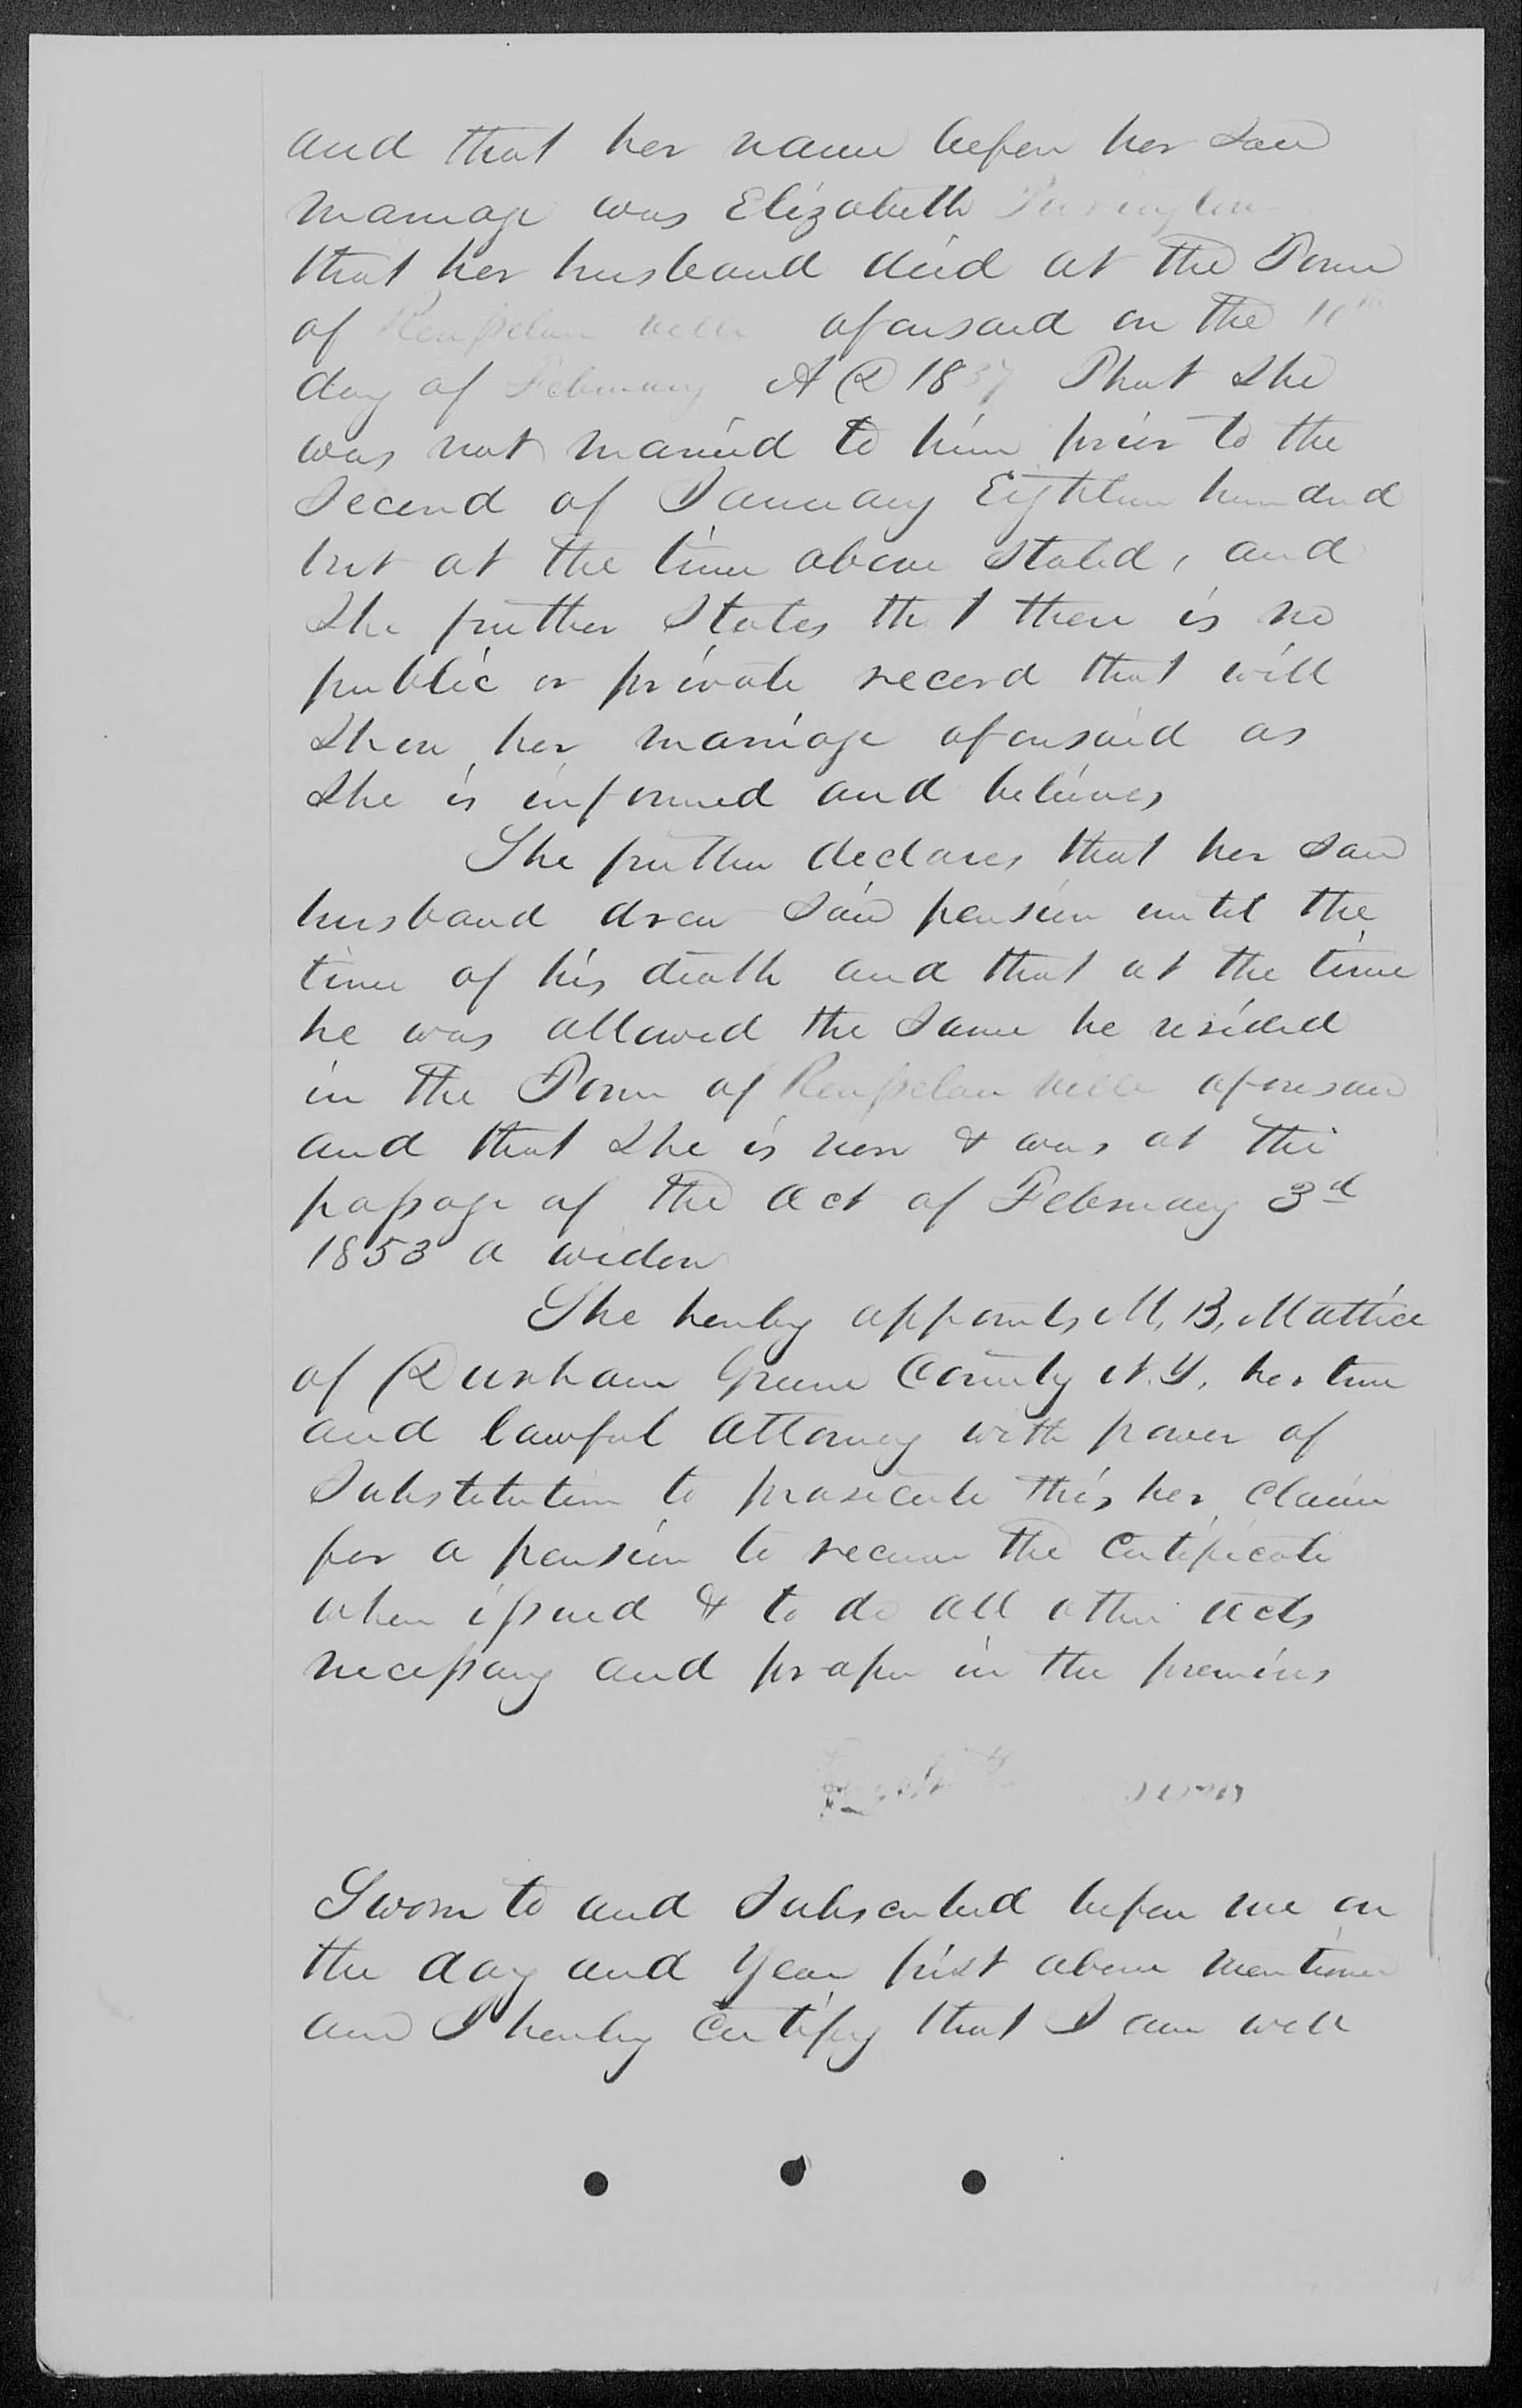 and that her name before her said
marriage was Elizabeth
that her husband died at the Town
of Rensselaerville aforesaid on the
day of February A D 1837 That she
was not married to him prior to the
Second of January Eighteen hundred
but at the time above stated, and
she further States that there is no
public or private record that will
show her marriage aforesaid as
she is informed and believes
She further declares that her said
husband drew said pension until the
time of his death and that at the time
he was allowed the same he resided
in the Town of Rensselaerville aforesaid
and that she is now & was at the
passage of the act of February 3d
1853 a widow
She hereby appoints M. B. Mattice
of Durham Greene County N. Y. her true
and lawful attorney with power of
Substitution to prosecute this her claim
for a pension to receive the Certificate
when issued & to do all other acts
necessary and proper in the premises
Sworn to and Subscribed before me on
the day and year first above mentioned
and I hereby certify that I am well